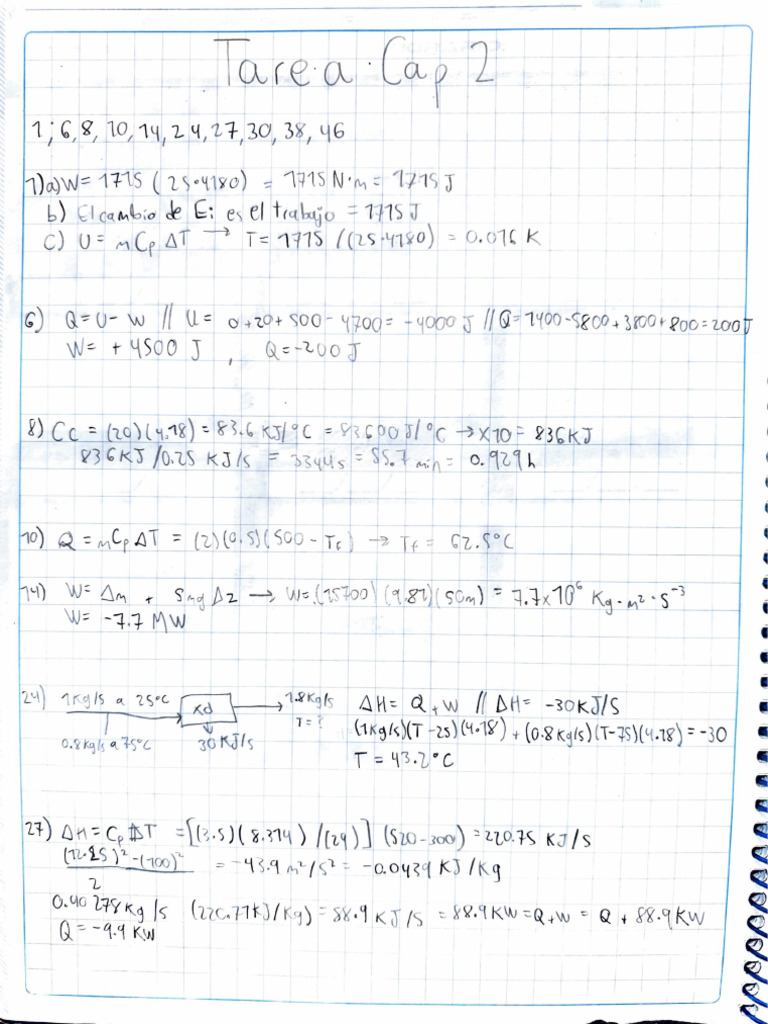 Tarea Cap 2
1; 6, 8, 10, 14, 24, 27, 30, 38, 46
1) a) W = 1715 (25·4180) = 1715 N·m = 1715 J
b) El cambio de E: es el trabajo = 1715 J
c) U = mCpΔT → T = 1715 /(25·4180) = 0.016 K
6) Q = U - W // U = 0+20+500-4700 = -4000 J // Q = 1400-5800+3800+800=200J
W = +4500 J , Q = -200 J
8) Cc = (20)(4.18) = 83.6 KJ/°C = 83600 J/°C → x10 = 836KJ
836KJ /0.25 KJ/s = 3344s = 55.7 min = 0.929h
10) Q = mCpΔT = (2)(0.5)(500 - Tf) → Tf = 62.5°C
14) W = Δm + 5mgΔz → W = (15700)(9.81)(50m) = 7.7x10⁶ Kg·m²·s⁻³
W = -7.7 MW
24) 1Kg/s a 25°C
0.8Kg/s a 75°C
xd
30 KJ/s
1.8Kg/s
T = ?
ΔH = Q + W // ΔH = -30KJ/s
(1Kg/s)(T-25)(4.18) + (0.8Kg/s)(T-75)(4.18) = -30
T = 43.2°C
27) ΔH = CpΔT = [(3.5)(8.314)/(29)] (520-300) = 220.75 KJ/s
(12.25)² - (100)² / 2 = -43.9 m²/s² = -0.0439 KJ/Kg
0.40278Kg/s (220.77KJ/Kg) = 88.9 KJ/s = 88.9 KW = Q+W = Q + 88.9KW
Q = -9.9 KW